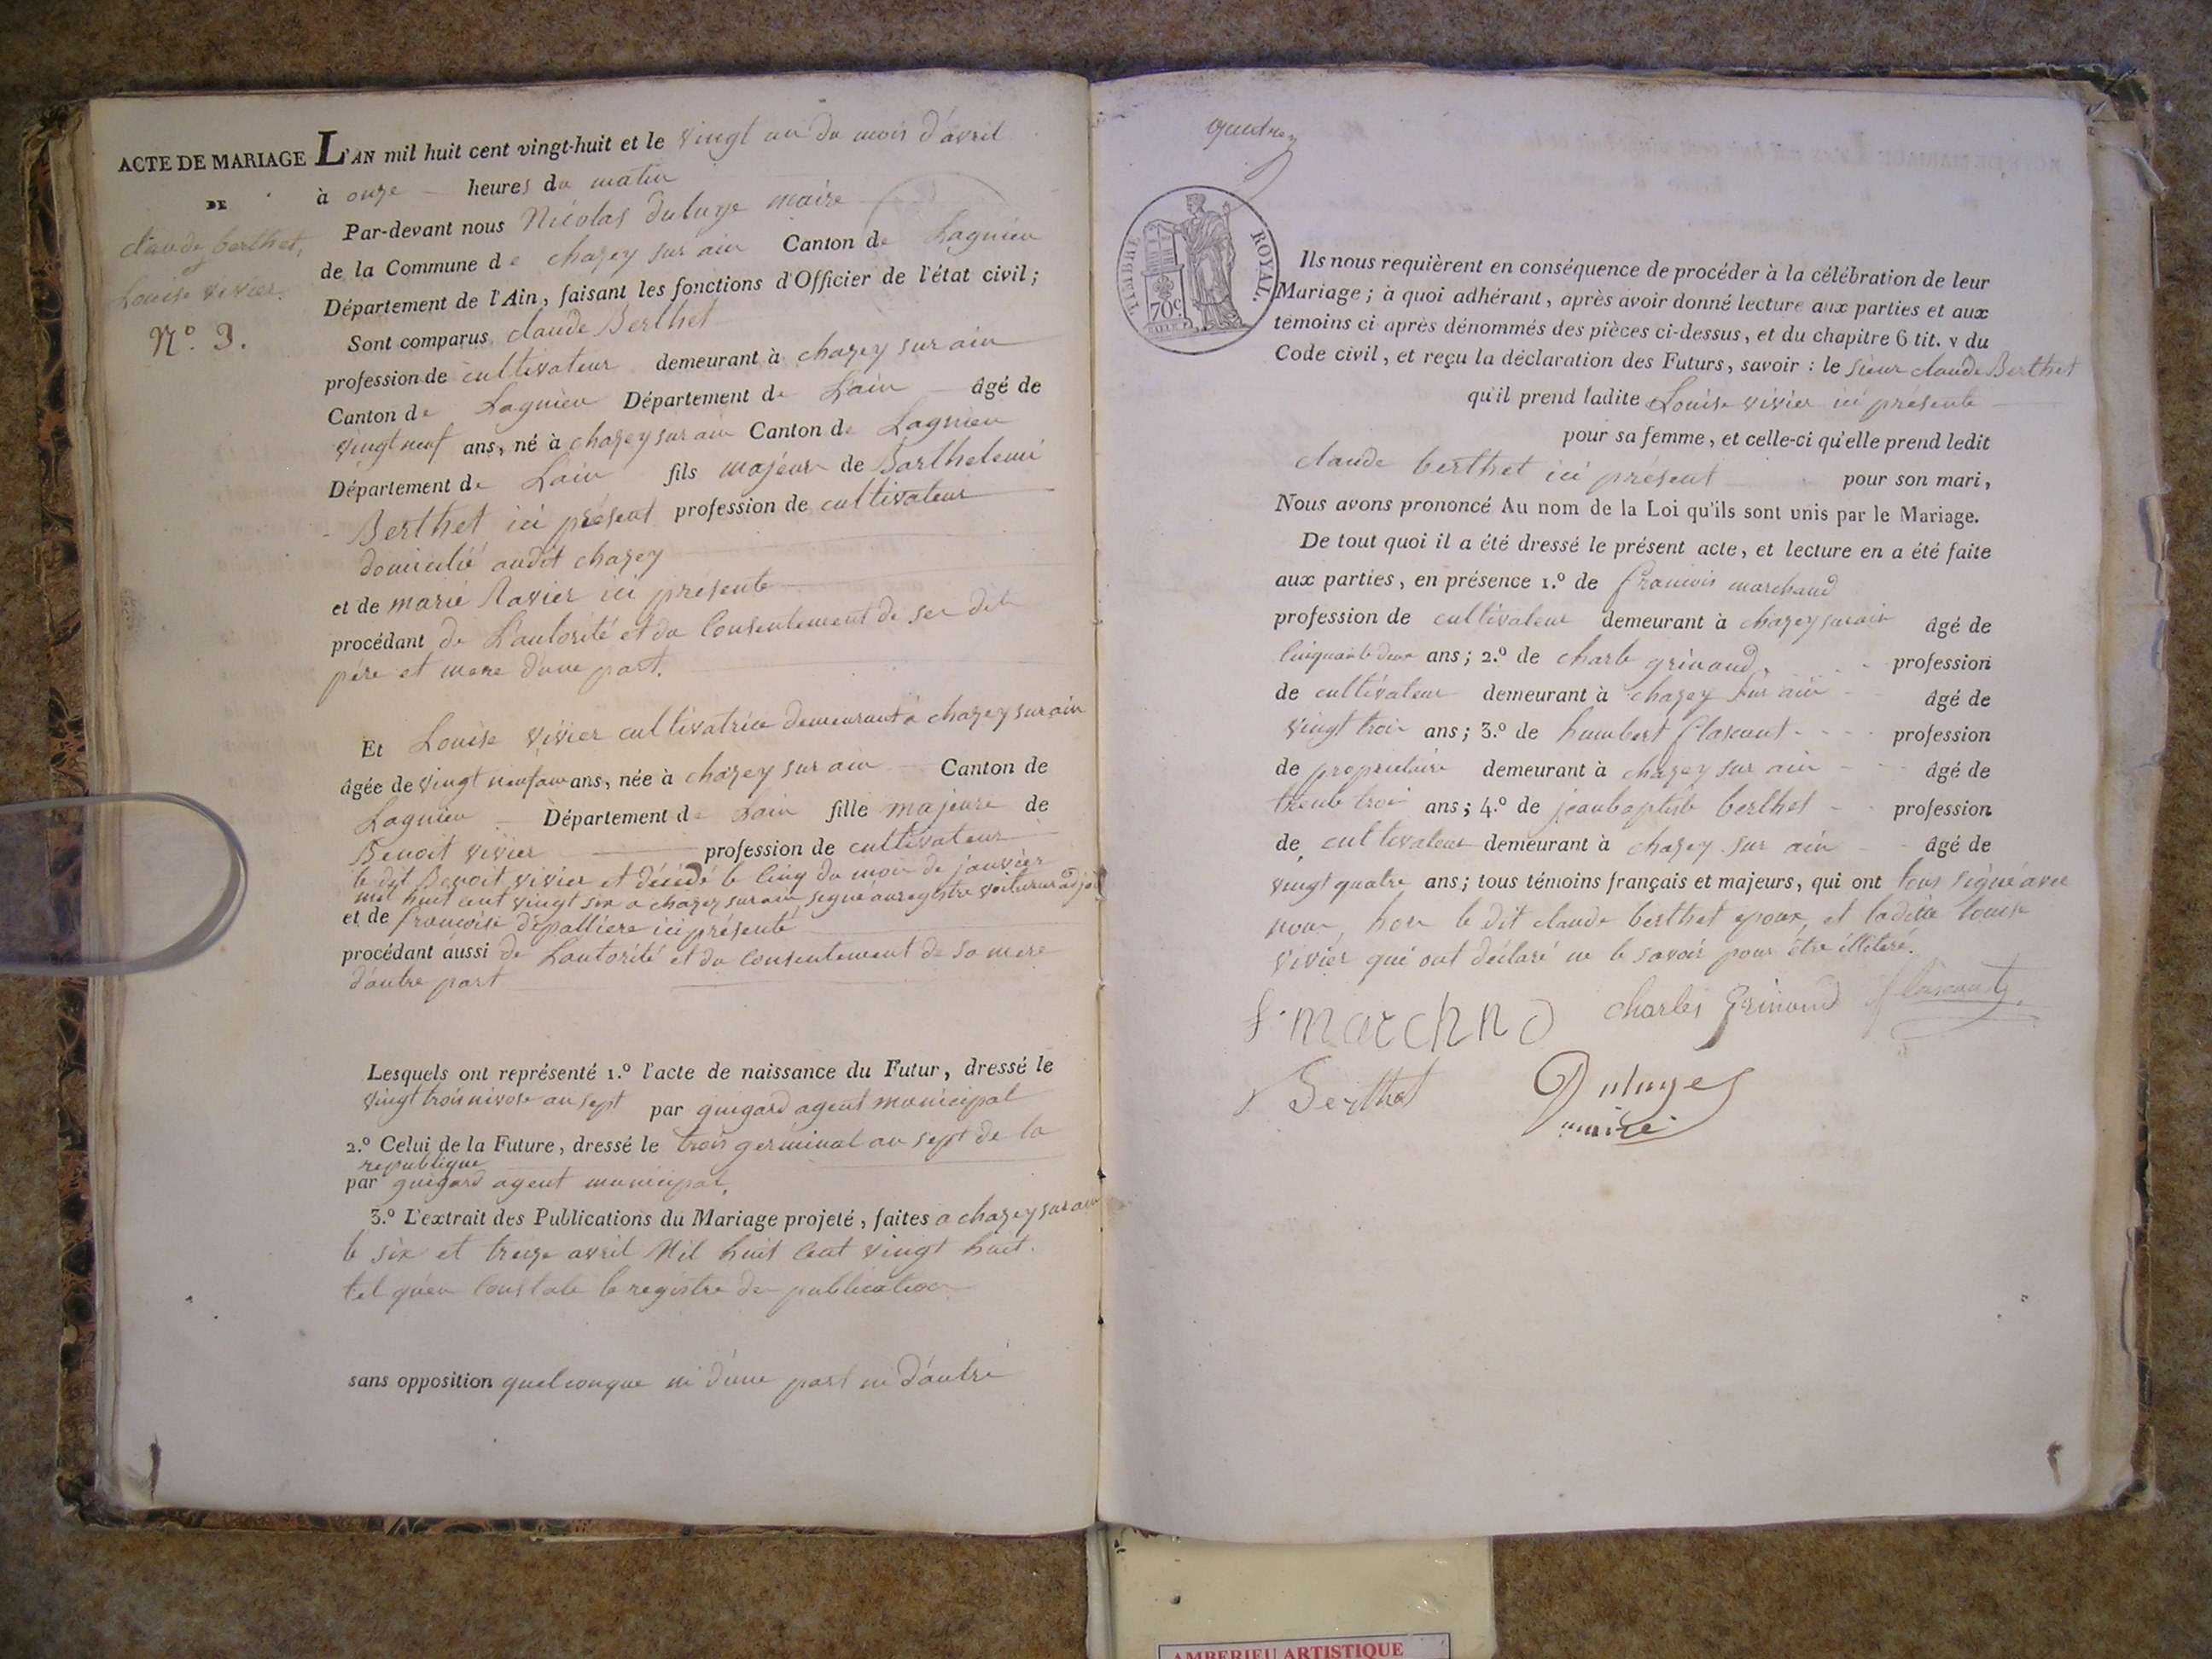 ACTE DE MARIAGE
DE
claude berthet,
et
Louise vivier.
N.º 3.
L'AN mil huit cent vingt-huit et le vingt un du mois d'avril
à onze heures du matin
Par-devant nous Nicolas duluye maire
de la Commune de chazey sur ain Canton de Lagnieu
Département de l'Ain, faisant les fonctions d'Officier de l'état civil;
Sont comparus claude Berthet
profession de cultivateur demeurant à chazey sur ain
Canton de Lagnieu Département de L'ain âgé de
vingt neuf ans, né à chazey sur ain Canton de Lagnieu
Département de Lain fils majeur de Barthelemi
Berthet ici présent profession de cultivateur
domicilié audit chazey
et de marie Ravier ici présente
procédant de L'autorité et du Consentement de ses dits
père et mere d'une part.
Et Louise vivier cultivatrice demeurant à chazey sur ain
âgée de vingt neuf ans ans, née à chazey sur ain Canton de
Lagnieu Département de Lain fille majeure de
Benoit vivier profession de cultivateur
le dit Benoit vivier et décédé le cinq du mois de janvier
mil huit cent vingt six a chazey sur ain signé au registre voiturier adjoi
et de francoise depalliere ici présente
procédant aussi de Lautorité et du consentement de sa mere
d'autre part
Lesquels ont représenté 1.º l'acte de naissance du Futur, dressé le
vingt trois nivose an sept par guigard agent municipal
2.º Celui de la Future, dressé le trois germinal an sept de la
republique
par guigard agent municipal,
3.º L'extrait des Publications du Mariage projeté, faites a chazey sur ain
le six et treize avril Mil huit Cent vingt huit.
tel quen Constate le registre de publication
sans opposition quelconque ni d'une part ni d'autre
TIMBRE ROYAL.
70c.
Ils nous requièrent en conséquence de procéder à la célébration de leur
Mariage; à quoi adhérant, après avoir donné lecture aux parties et aux
témoins ci après dénommés des pièces ci-dessus, et du chapitre 6 tit. v du
Code civil, et reçu la déclaration des Futurs, savoir: le sieur claude Berthet
qu'il prend ladite Louise vivier ici présente
pour sa femme, et celle-ci qu'elle prend ledit
claude berthet ici présent pour son mari,
Nous avons prononcé Au nom de la Loi qu'ils sont unis par le Mariage.
De tout quoi il a été dressé le présent acte, et lecture en a été faite
aux parties, en présence 1.º de francois marchand
profession de cultivateur demeurant à chazey sur ain âgé de
Cinquante deux ans; 2.º de charle grinand, profession
de cultivateur demeurant à chazey sur ain âgé de
vingt trois ans; 3.º de humbert flascaut profession
de propriétaire demeurant à chazey sur ain âgé de
trente trois ans; 4.º de jeanbaptiste berthet profession
de cultivateur demeurant à chazey sur ain âgé de
vingt quatre ans; tous témoins français et majeurs, qui ont tous signé avec
nous, hors le dit claude berthet epoux et ladite louise
vivier qui ont déclaré ne le savoir pour être illiteré.
f. marchnd
charles Grinand
Berthet
Duluye
maire
AMBERIEU ARTISTIQUE